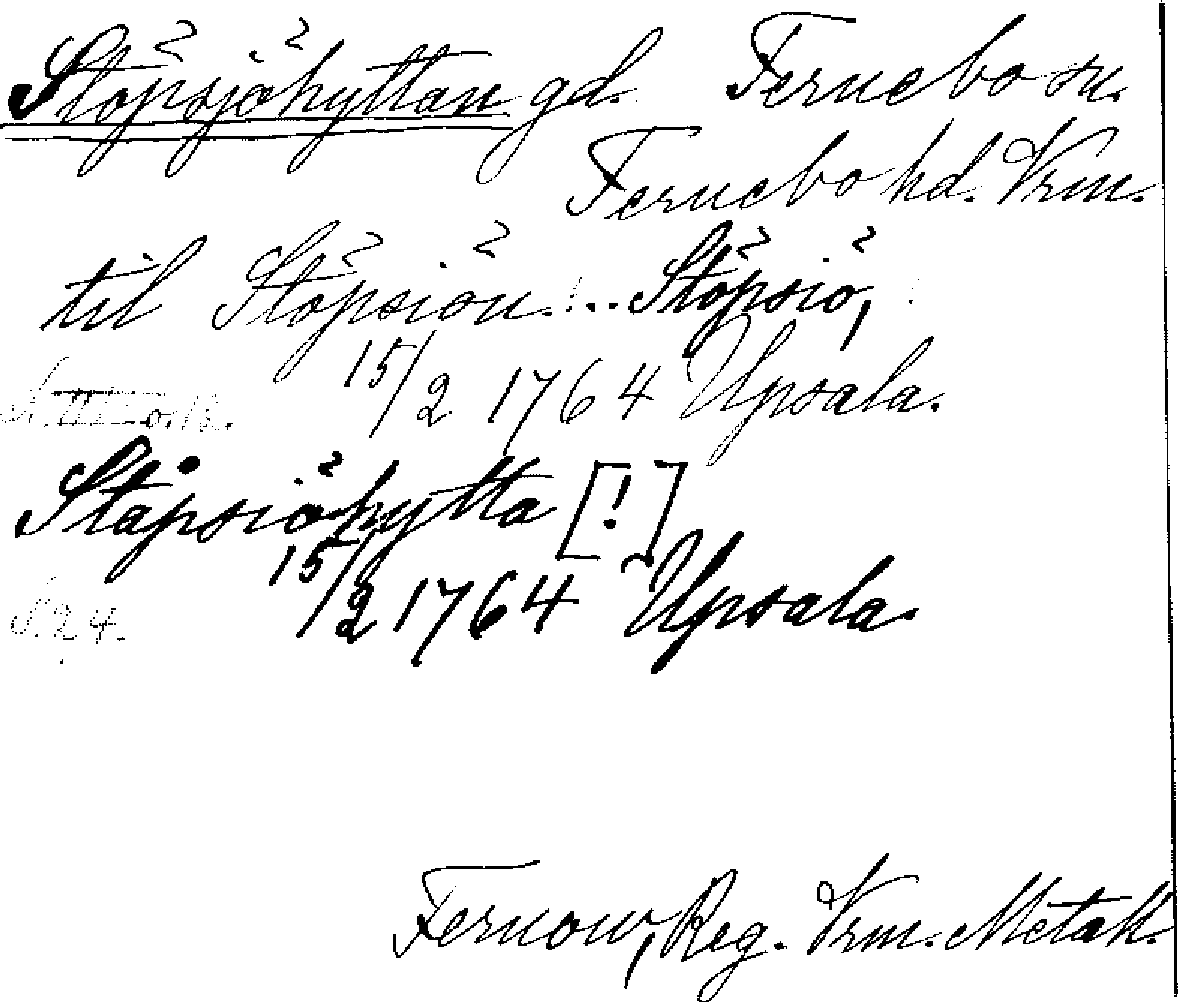 Stöpsjöhyttan gd. Fernebo sn.
Fernebo hd. Vrm.
til Stöpsiön... Stöpsiö,
15/2 1764 Upsala.
Ståpsiöhytta [!]
15/2 1764 Upsala.
S. 24.
Fernow, Reg. Vrm. Metall.